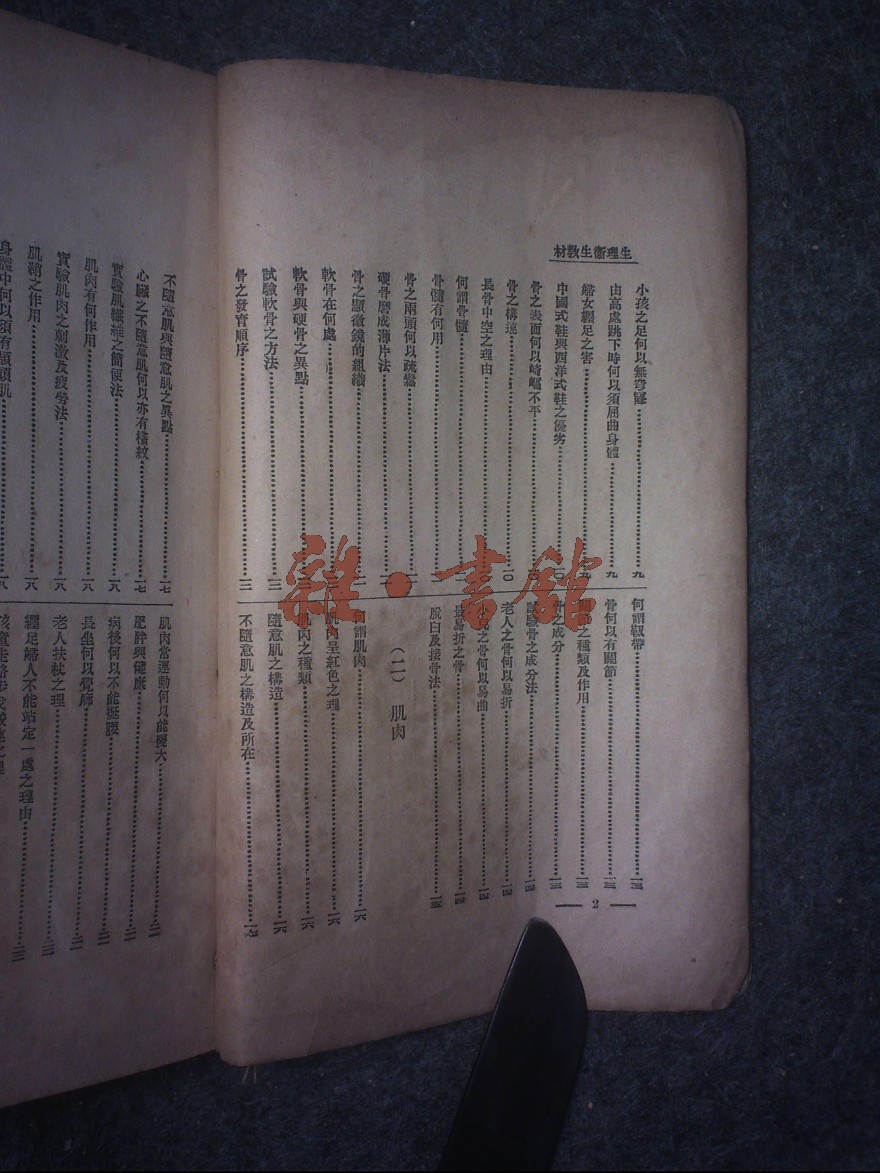 生理衞生敎材
小孩之足何以無穹窿……九
由高處跳下時何以須屈曲身體……九
婦女纏足之害……九
中國式鞋與西洋式鞋之優劣……一〇
骨之表面何以崎嶇不平
骨之構造……一〇
長骨中空之理由
何謂骨髓
骨髓有何用
骨之兩頭何以疏鬆
硬骨磨成薄片法
骨之顯微鏡的組織
軟骨在何處
軟骨與硬骨之異點
試驗軟骨之方法
骨之發育順序
何謂靱帶……一三
骨何以有關節……一三
之種類及作用……一三
骨之成分……一三
試驗骨之成分法……一四
老人之骨何以易折……一四
之骨何以易曲……一四
最易折之骨……一四
脫臼及接骨法……一五
(二) 肌肉
何謂肌肉……一六
肌肉呈紅色之理……一六
肌肉之種類……一六
隨意肌之構造……一六
不隨意肌之構造及所在……一七
2
不隨意肌與隨意肌之異點……一七
心臟之不隨意肌何以亦有橫紋……一七
實驗肌纖維之簡便法……一八
肌肉有何作用……一八
實驗肌肉之刺激及疲勞法……一八
肌鞘之作用……一八
身體中何以須有頡頏肌……一八
肌肉當運動何以能變大
肥胖與健康
病後何以不能挺腰
長坐何以覺疲
老人扶杖之理
纏足婦人不能站定一處之理由